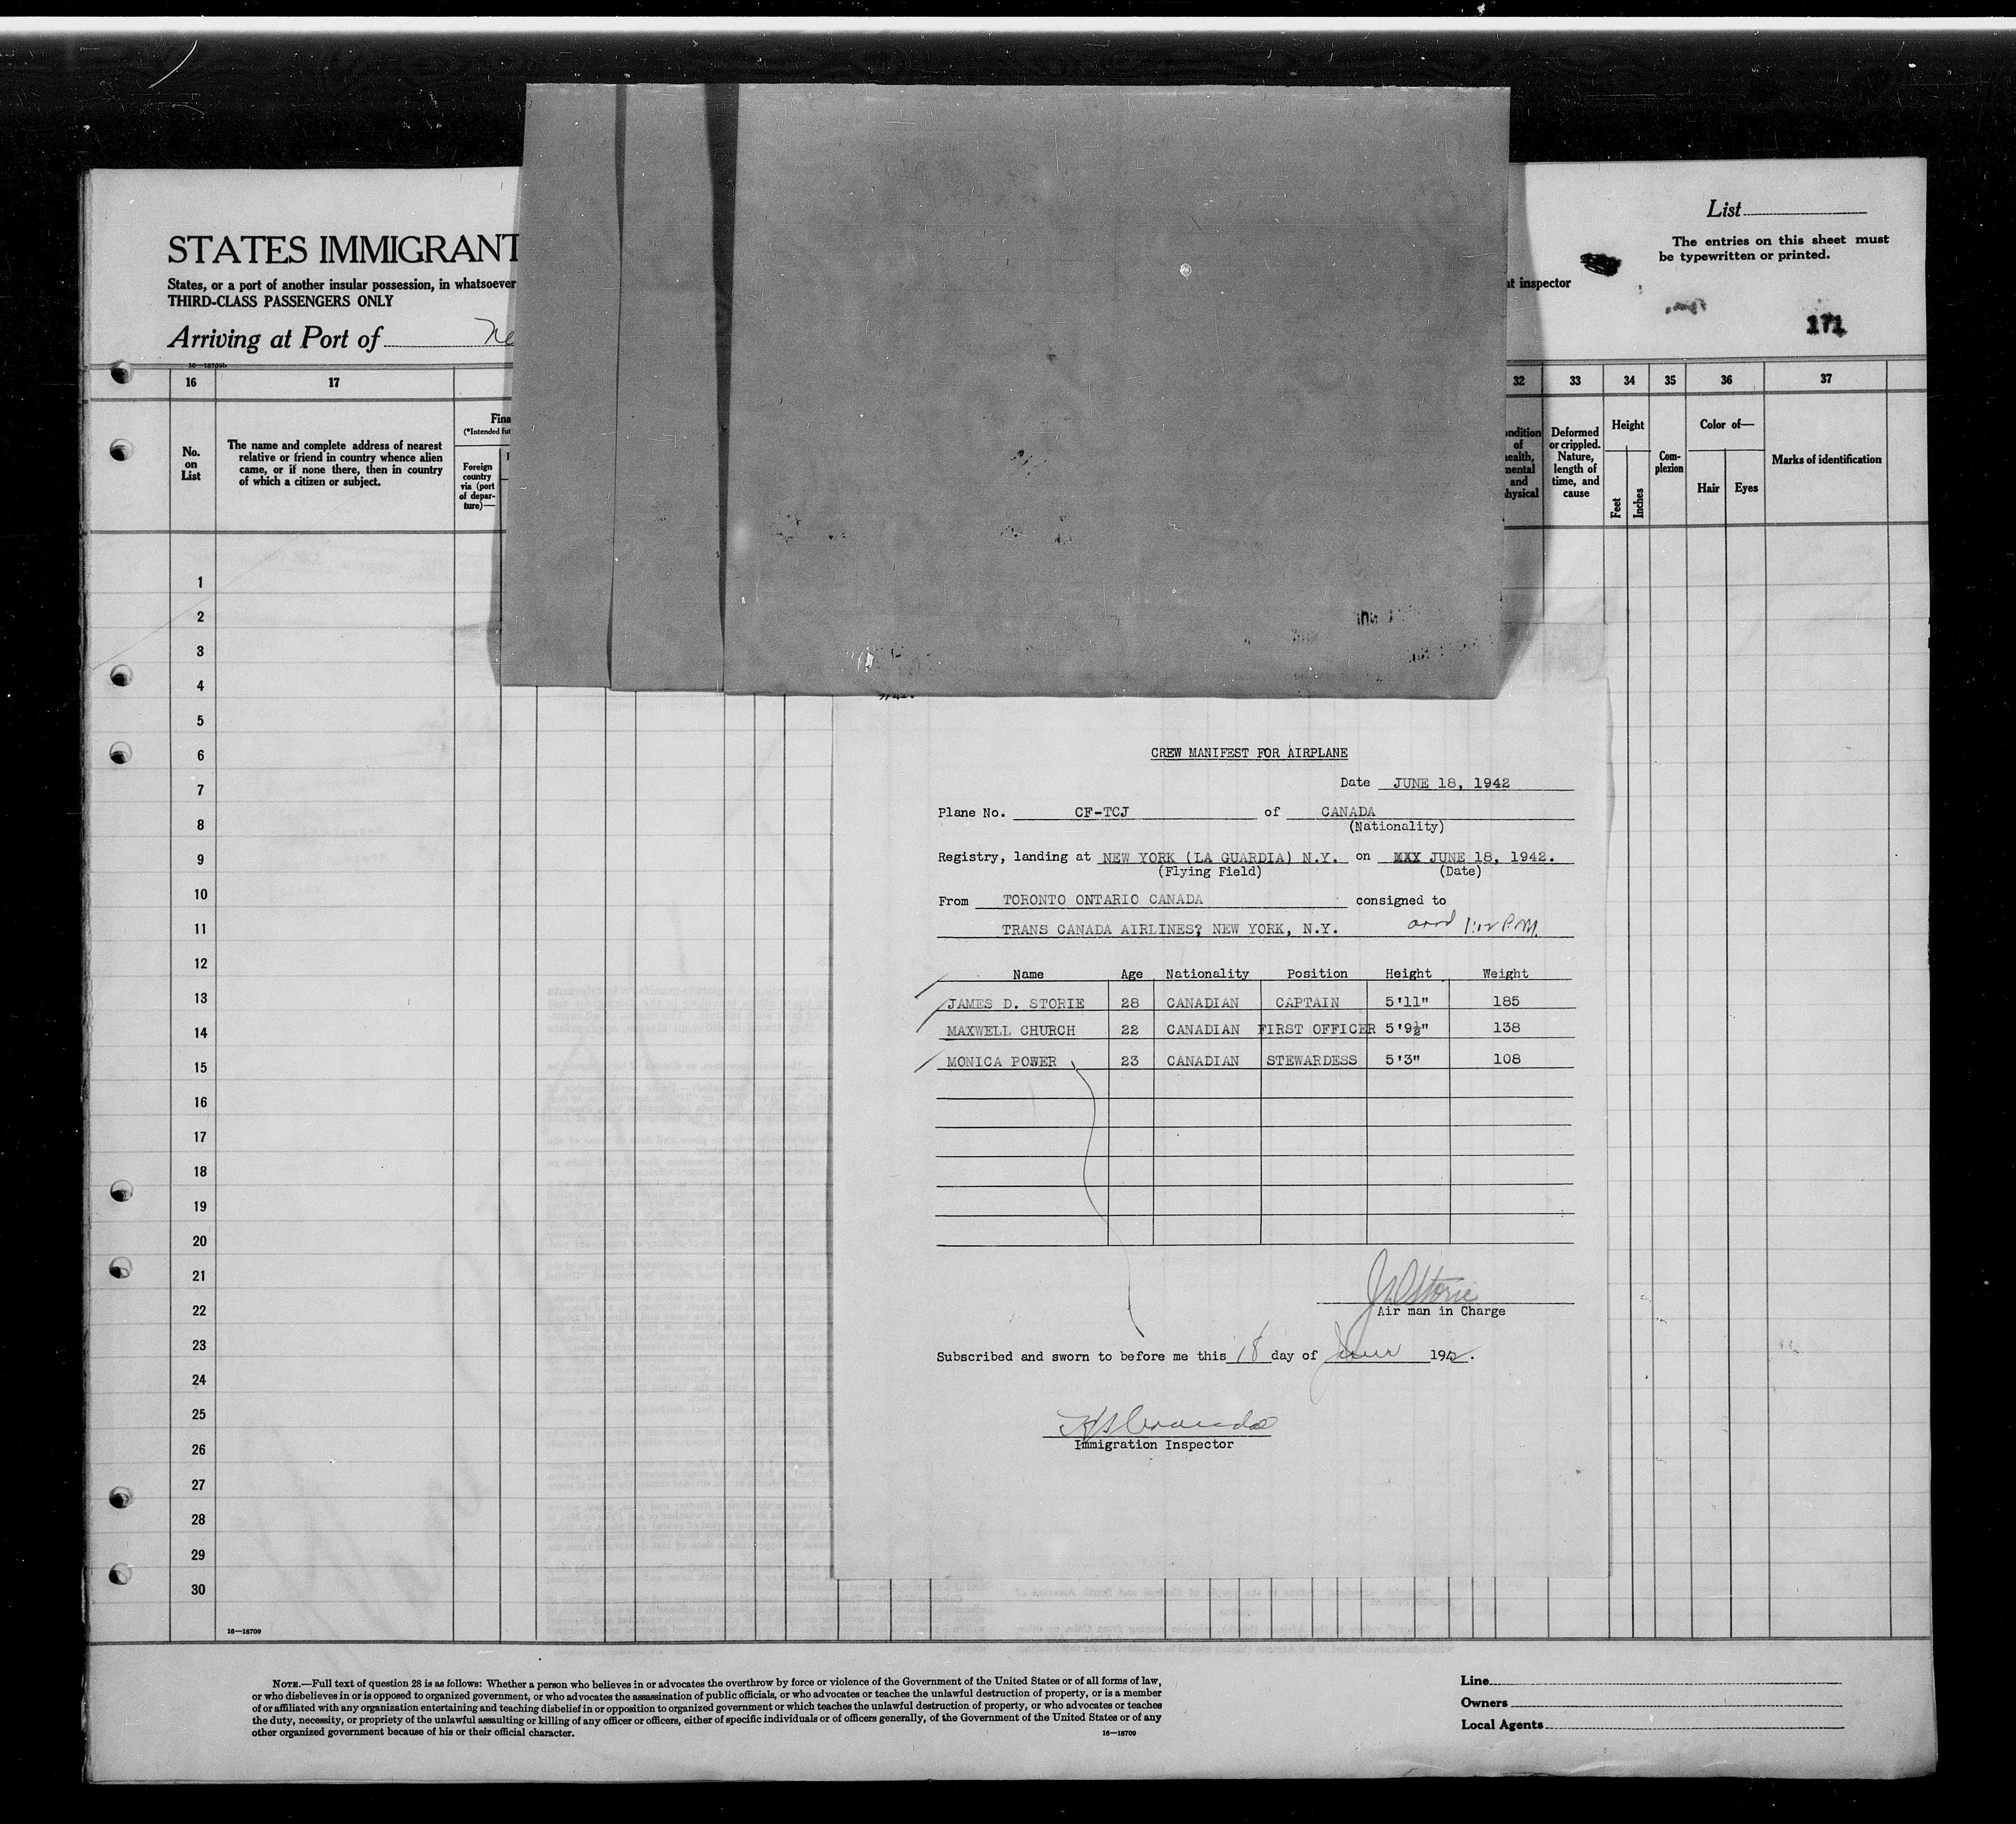 List
The entries on this sheet must
be typewritten or printed.
STATES IMMIGRANT
States, or a port of another insular possession, in whatsoever
THIRD-CLASS PASSENGERS ONLY
t inspector
171
Arriving at Port of Ne
16—18709b
16 17 32 33 34 35 36 37
No.
on
List
The name and complete address of nearest
relative or friend in country whence alien
came, or if none there, then in country
of which a citizen or subject.
Fina
(*Intended fut
Foreign
country
via (port
of depar-
ture)—
ondition
of
health,
mental
and
hysical
Deformed
or crippled.
Nature,
length of
time, and
cause
Height
Feet
Inches
Com-
plexion
Color of—
Hair Eyes
Marks of identification
1
2
3
4
5
6
7
8
9
10
11
12
13
14
15
16
17
18
19
20
21
22
23
24
25
26
27
28
29
30
16—18709
CREW MANIFEST FOR AIRPLANE
Date JUNE 18, 1942
Plane No. CF-TCJ of CANADA
(Nationality)
Registry, landing at NEW YORK (LA GUARDIA) N.Y. on MXX JUNE 18, 1942.
(Flying Field) (Date)
From TORONTO ONTARIO CANADA consigned to
TRANS CANADA AIRLINES? NEW YORK, N.Y. arrd 1:12 P.M.
Name Age Nationality Position Height Weight
JAMES D. STORIE 28 CANADIAN CAPTAIN 5'11" 185
MAXWELL CHURCH 22 CANADIAN FIRST OFFICER 5'9½" 138
MONICA POWER 23 CANADIAN STEWARDESS 5'3" 108
JDStorie
Air man in Charge
Subscribed and sworn to before me this 18 day of June 1942.
Immigration Inspector
NOTE.—Full text of question 28 is as follows: Whether a person who believes in or advocates the overthrow by force or violence of the Government of the United States or of all forms of law,
or who disbelieves in or is opposed to organized government, or who advocates the assassination of public officials, or who advocates or teaches the unlawful destruction of property, or is a member
of or affiliated with any organization entertaining and teaching disbelief in or opposition to organized government or which teaches the unlawful destruction of property, or who advocates or teaches
the duty, necessity, or propriety of the unlawful assaulting or killing of any officer or officers, either of specific individuals or of officers generally, of the Government of the United States or of any
other organized government because of his or their official character.
16—18709
Line
Owners
Local Agents